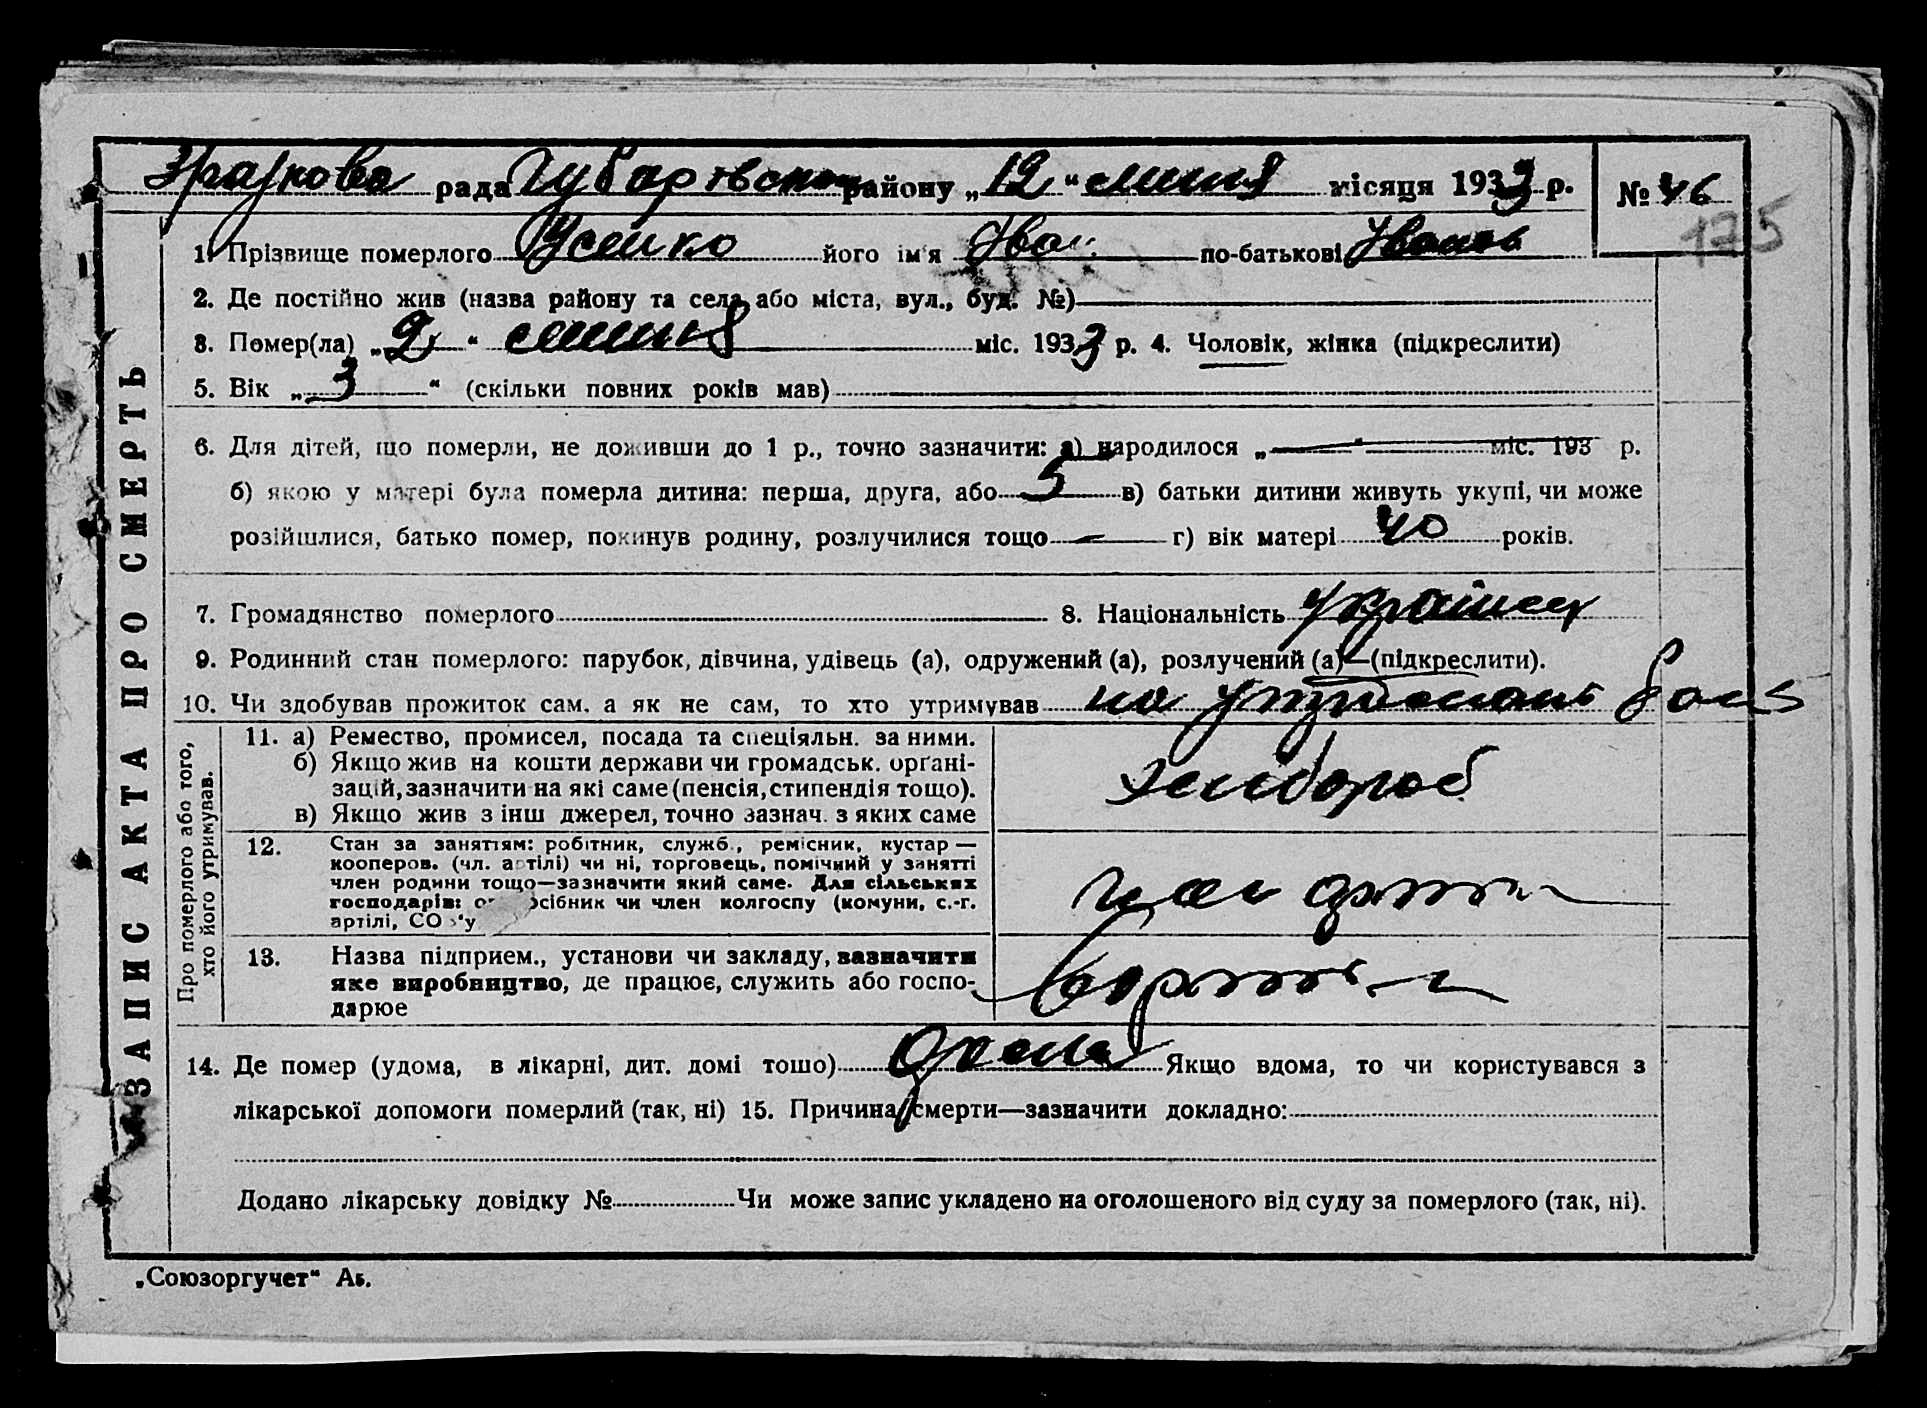 рада района „12“ липня місяця 1933 р. № 46
175
1. Прізвище померлого Усенко його ім'я Іван по-батькові Іванов
2. Де постійно жив (назва району та села або міста, вул., буд. №)
3. Помер(ла) „2“ липня міс. 1933 р. 4. Чоловік, жінка (підкреслити)
5. Вік „3“ (скільки повних років мав)
6. Для дітей, що померли, не доживши до 1 р., точно зазначити: а) народилося „ “ міс. 193 р.
б) якою у матері була померла дитина: перша, друга, або 5 в) батьки дитини живуть укупі, чи може
розійшлися, батько помер, покинув родину, розлучилися тощо — г) вік матері 40 років.
7. Громадянство померлого 8. Національність
9. Родинний стан померлого: парубок, дівчина, удівець (а), одружений (а), розлучений (а)—(підкреслити).
10. Чи здобував прожиток сам, а як не сам, то хто утримував на
ЗАПИС АКТА ПРО СМЕРТЬ
Про померлого або того,
хто його утримував.
11. а) Ремество, промисел, посада та спеціяльн. за ними.
б) Якщо жив на кошти держави чи громадськ. органі-
зацій, зазначити на які саме (пенсія, стипендія тощо).
в) Якщо жив з інш джерел, точно зазнач. з яких саме
хлібороб
12. Стан за заняттям: робітник, служб., ремісник, кустар —
кооперов. (чл. артілі) чи ні, торговець, помічний у занятті
член родини тощо—зазначити який саме. Для сільських
господарів: чи член колгоспу (комуни, с.-г.
артілі, СО
13. Назва підприєм., установи чи закладу, зазначити
яке виробництво, де працює, служить або госпо-
дарює
14. Де помер (удома, в лікарні, дит. домі тощо) дома Якщо вдома, то чи користувався з
лікарської допомоги померлий (так, ні) 15. Причина смерти—зазначити докладно:
Додано лікарську довідку № Чи може запис укладено на оголошеного від суду за померлого (так, ні).
„Союзоргучет“